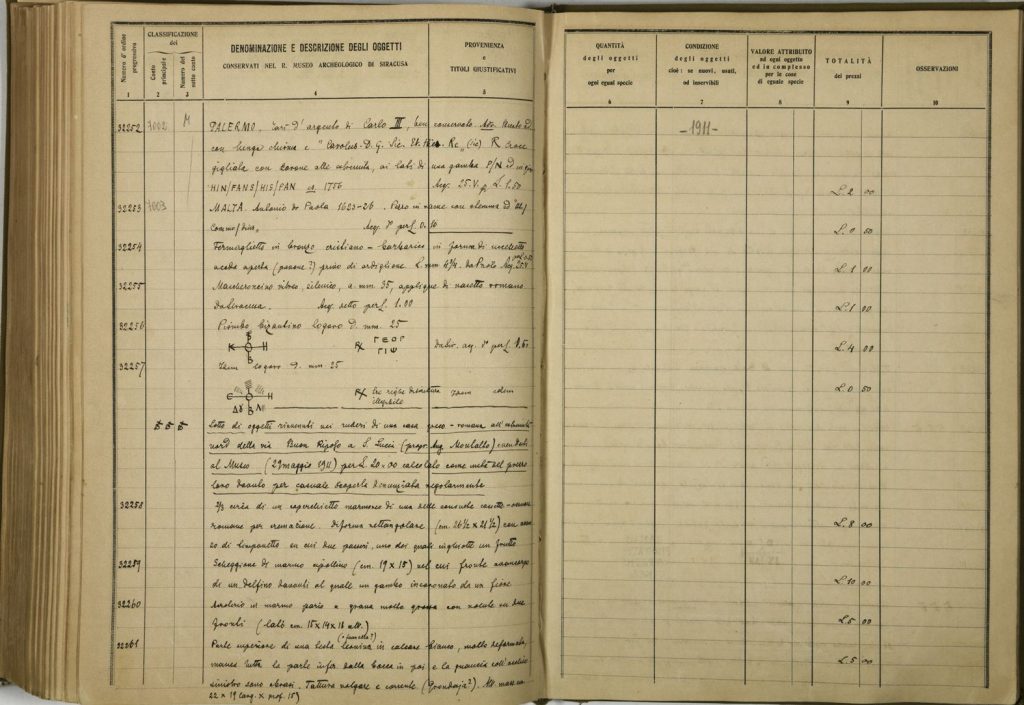 Numero d'ordine progressivo
CLASSIFICAZIONE dei
Costo principale
Numero del sotto costo
DENOMINAZIONE E DESCRIZIONE DEGLI OGGETTI
CONSERVATI NEL R. MUSEO ARCHEOLOGICO DI SIRACUSA
PROVENIENZA
e
TITOLI GIUSTIFICATIVI
1 2 3 4 5
32252 7002 M PALERMO. Tarì d'argento di Carlo III, ben conservato.
con lunga chioma e "Carolus. D. G. Sic. Et. Re" (sic) R croce
gigliata con corone alle estremità, ai lati di una gamba P/N
HIN/FANS/HIS/PAN 1756 Acq. 25.V. p. L. 1.50
32253 7003 MALTA. Antonio de Paola 1623-26. in rame con stemma
Acq. per L. 0.
32254 Fermaglietto in bronzo cristiano - barbarico in forma di uccelletto
a coda aperta (pavone?) privo di ardiglione. L. mm da Acq. 25.V
32255 Mascheroncino silenico, a mm. 35, applique di vasetto romano
Da Siracusa. Acq. detto per L. 1.00
32256 Piombo bizantino logoro D. mm. 25
K H
ΓΕΟΡ
ΓΙΨ
Da Sir. acq. per L.
32257 Idem logoro D. mm. 25
C H
tre righe
illegibile
Idem
Lotto di oggetti rinvenuti nei ruderi di una casa greco-romana all'estremità
nord della via Buon Riposo a S. Lucia (propr. Aug. Montalto)
al Museo (29 maggio 1911) per L. 20.00 calcolato come metà del prezzo
loro dovuto per casuale scoperta denunziata regolarmente
32258 2/3 circa di un coperchietto marmoreo di una delle consuete cassette
romane per cremazione. Di forma rettangolare (cm. 26½ x 21½) con
di timpanetto su cui due passeri, uno dei quali inghiotte un frutto
32259 Scheggione di marmo cipollino (cm. 19 x 15) nel cui fronte
di un delfino davanti al quale un gambo incoronato da un fiore
32260 in marmo pario a grana molto grossa con volute su due
fronti (lato cm. 15 x 14 x 18 alt.)
32261 Parte superiore di una testa leonina (o pantera?) in calcare bianco, molto deformata,
manca tutta la parte infer. dalla bocca in poi e la guancia coll'occhio
sinistro sono abrasi. Fattura volgare e corrente (Grondaja?).
22 x 19 larg. x prof. 15)
QUANTITÀ
degli oggetti
per
ogni egual specie
CONDIZIONE
degli oggetti
cioè: se nuovi, usati,
od inservibili
VALORE ATTRIBUITO
ad ogni oggetto
ed in complesso
per le cose
di eguale specie
TOTALITÀ
dei prezzi
OSSERVAZIONI
6 7 8 9 10
-1911-
L. 2 00
L. 0 50
L. 1 00
L. 1 00
L. 4 00
L. 0 50
L. 8 00
L. 10 00
L. 5 00
L. 5 00